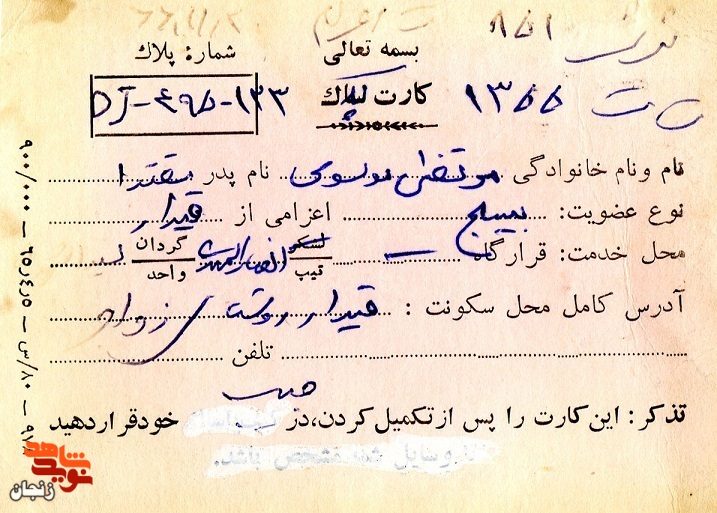 ۸۵۱
بسمه تعالی
شماره پلاک
کارت پلاک
۱۳۵۵
DJ-۴۹۵-۱۳۳
نام و نام خانوادگی مرتضی موسوی نام پدر مقتدا
نوع عضویت: بسیج اعزامی از قیدار
محل خدمت: قرارگاه لشکر تیپ انصارالمهدی گردان واحد
آدرس کامل محل سکونت : قیدار روستای
تلفن
تذکر: این کارت را پس از تکمیل کردن، در جیب خود قرار دهید
مشخص باشد.
۹۰۰/۰۰۰ – ۶۵ر۴ر۵ – ۸۰/س –
شاهد
نوید
زنجان